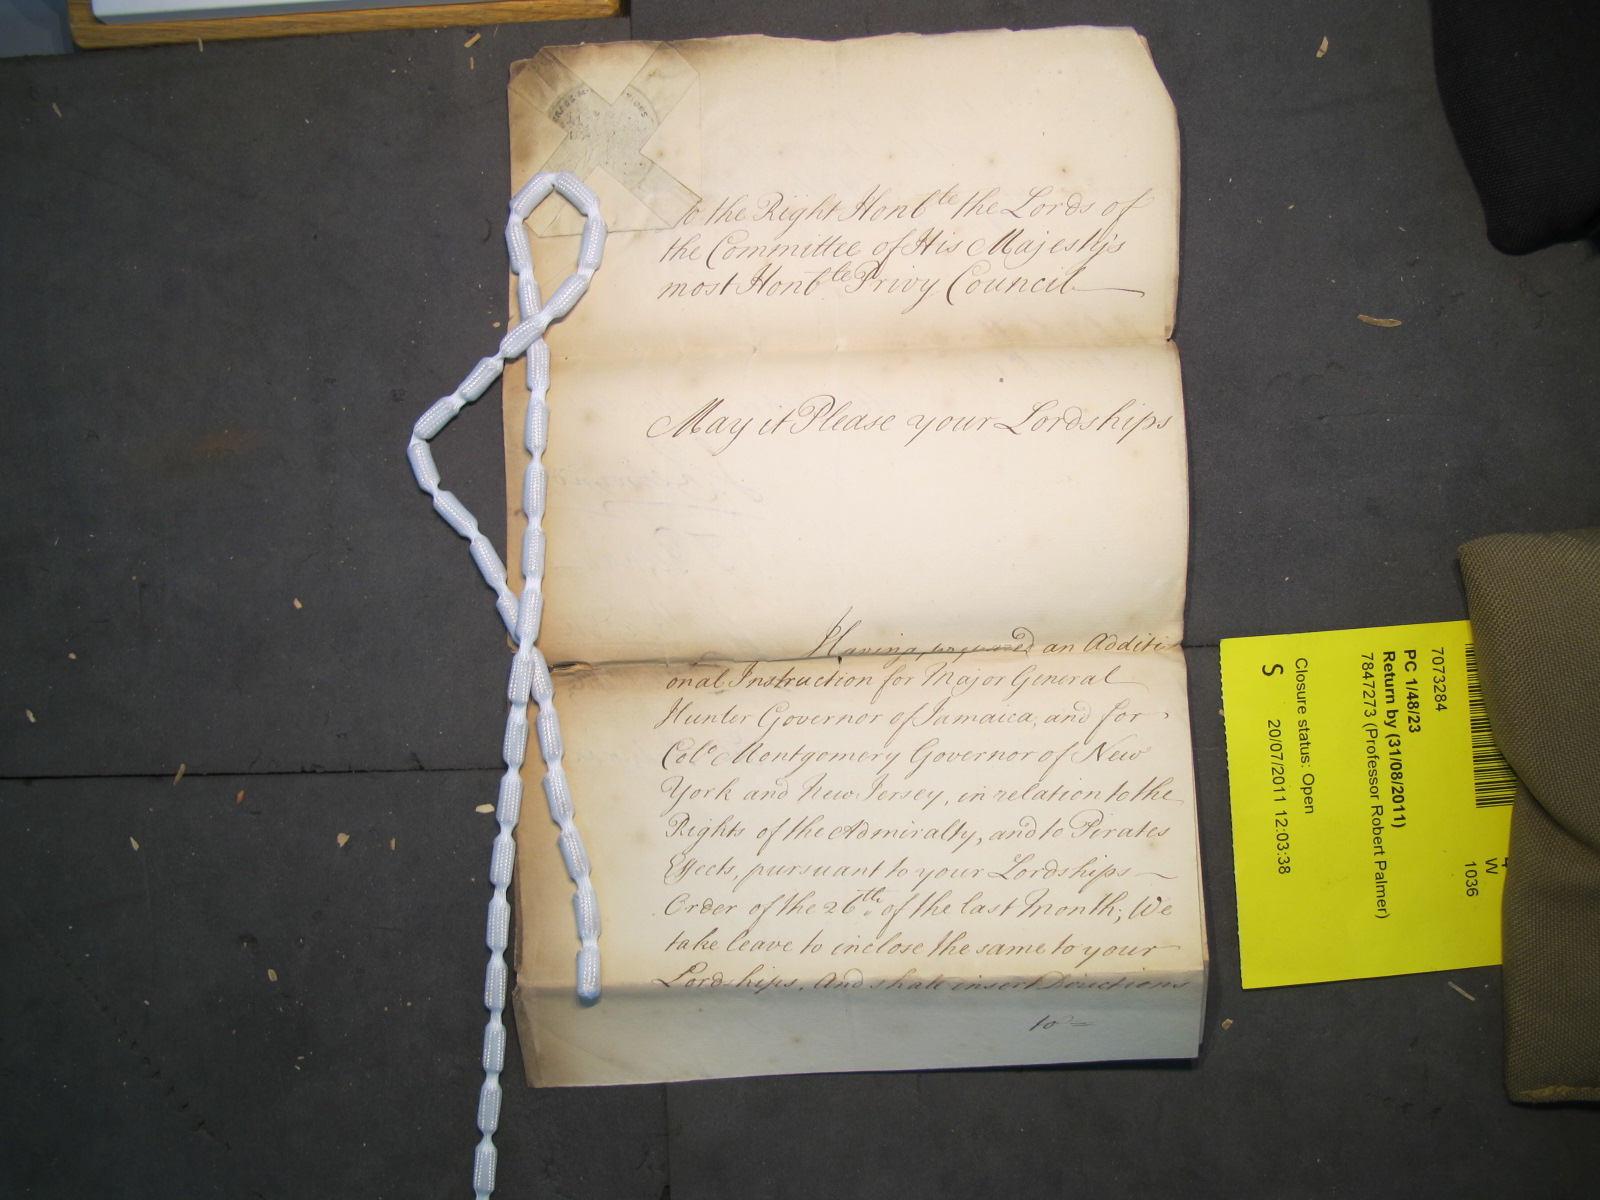 to the Right Honb^le the Lords of
the Committee of His Majestys
most Honb^le Privy Council
May it Please your Lordships
Having prepared an Additi
onal Instruction for Major General
Hunter Governor of Jamaica, and for
Col^o Montgomery Governor of New
York and New Jersey, in relation to the
Rights of the Admiralty, and to Pirates
Effects, pursuant to your Lordships
Order of the 26^th of the last Month; We
take leave to inclose the same to your
Lordships, And shall insert Directions
to
7073284
PC 1/48/23
Return by (31/08/2011)
7847273 (Professor Robert Palmer)
Closure status: Open
S 20/07/2011 12:03:38
W
1036